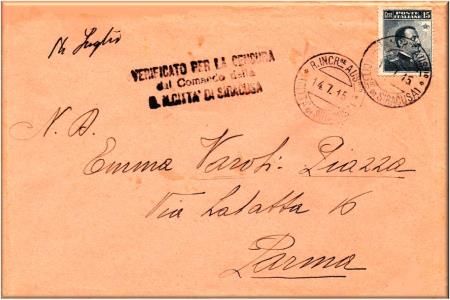 14 Luglio
VERIFICATO PER LA CENSURA
dal Comando della
R. N. CITTA' DI SIRACUSA
POSTE ITALIANE
Cent 15
R. INCR.
14.7.15
SIRACUSA
15
SIRACUSA
N. D.
Emma Varoli-Piazza
Via Lalatta 16
Parma